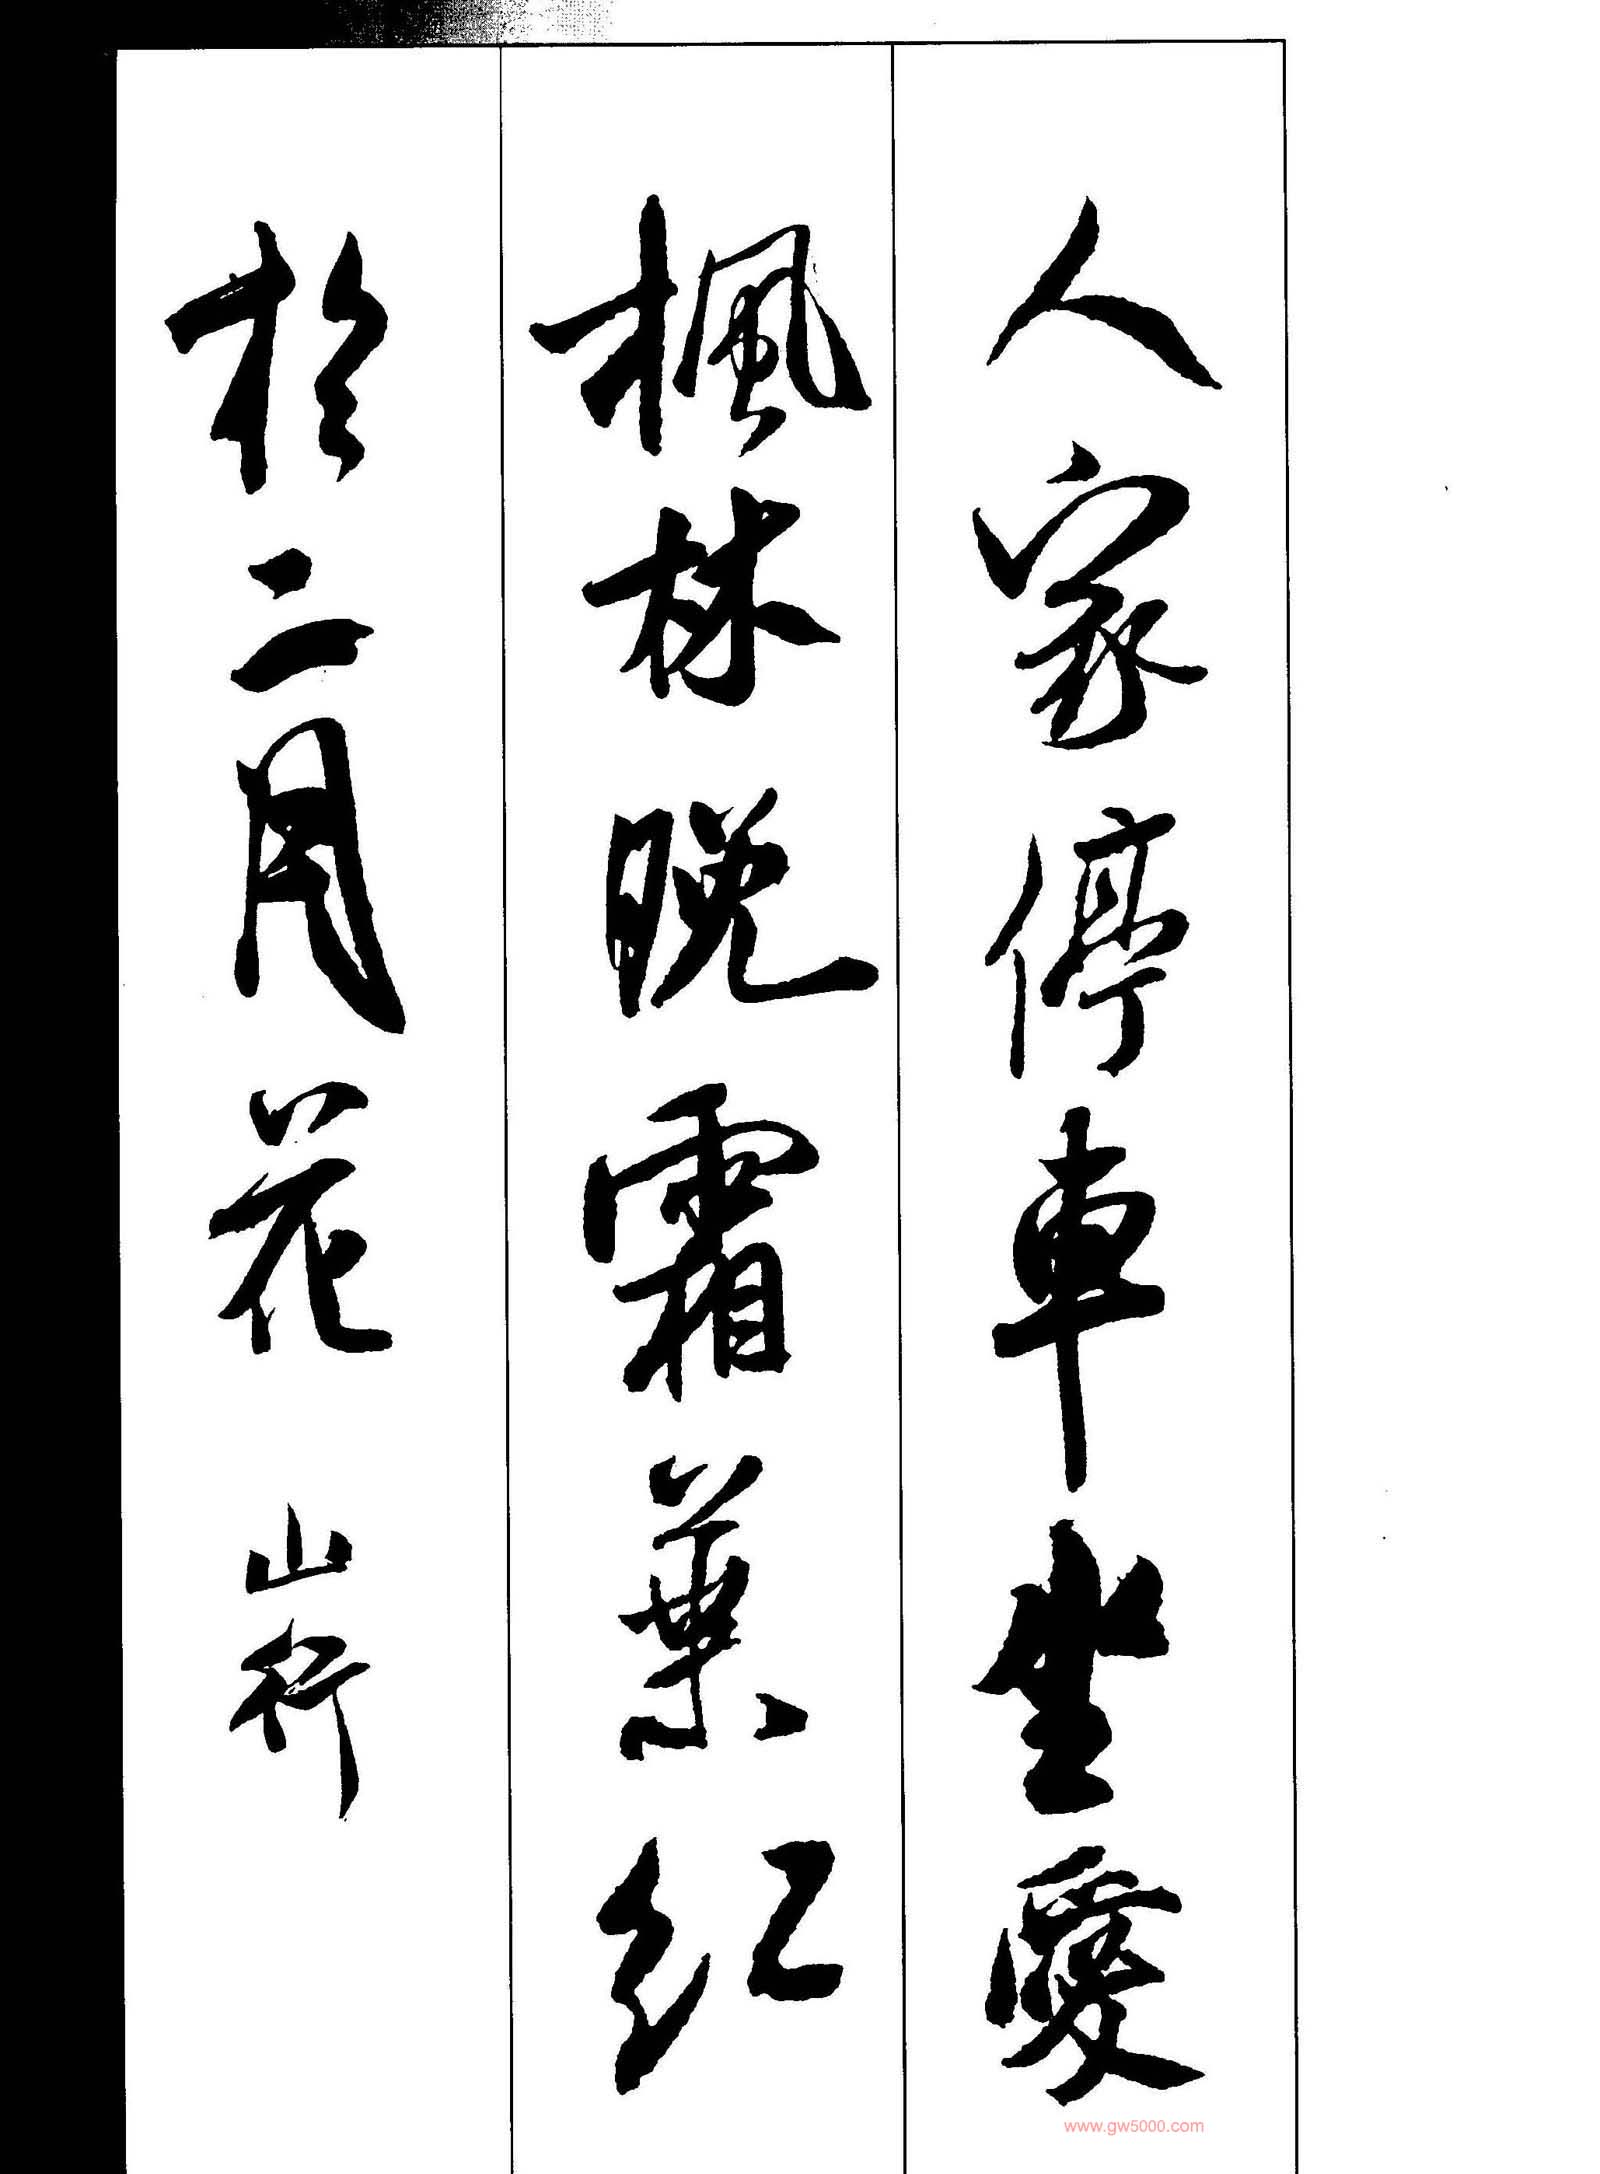 人家停車坐愛
楓林晚霜葉紅
於二月花 山行
www.gw5000.com